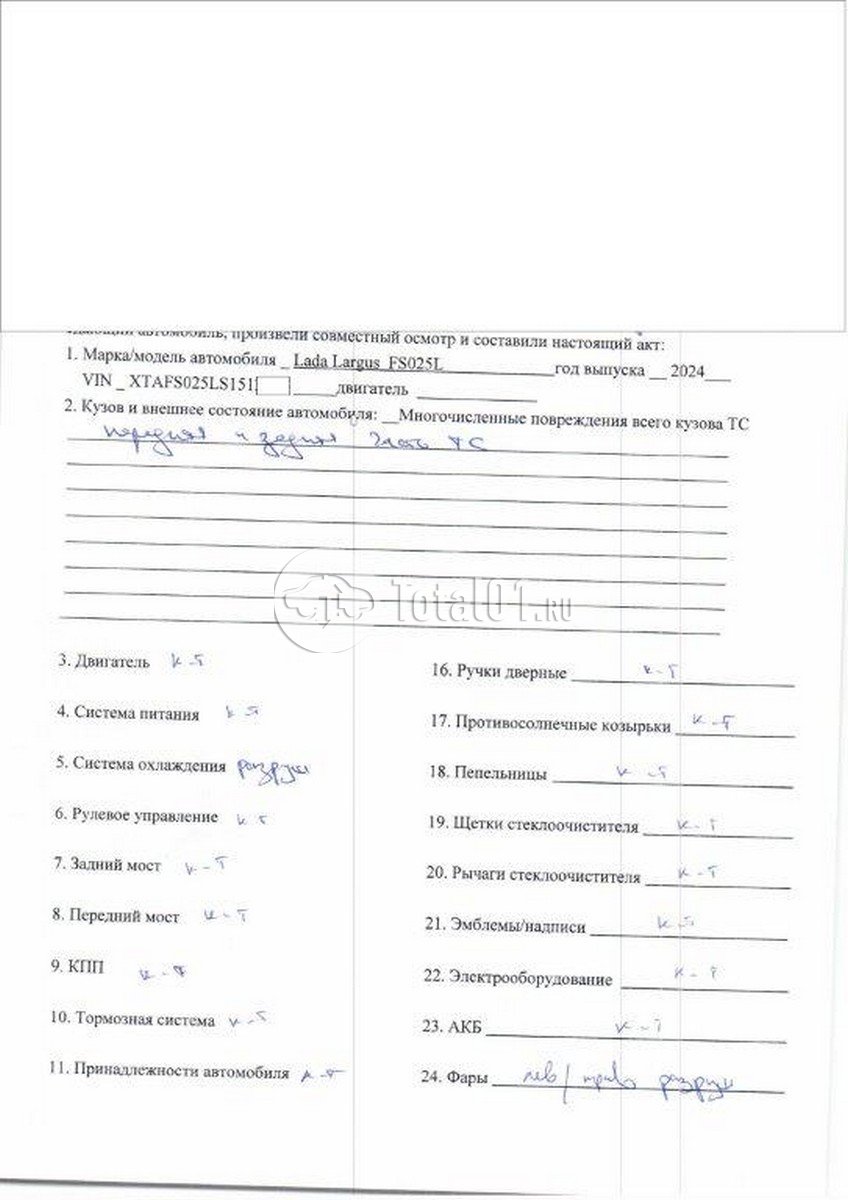 автомобиль, произвели совместный осмотр и составили настоящий акт:
1. Марка/модель автомобиля _ Lada Largus_FS025L____________год выпуска __ 2024___
VIN _ XTAFS025LS151 _____двигатель ______________
2. Кузов и внешнее состояние автомобиля: __Многочисленные повреждения всего кузова ТС
передняя и задняя часть ТС
Total01.RU
3. Двигатель к-т
4. Система питания к-т
5. Система охлаждения разруш
6. Рулевое управление к т
7. Задний мост к-т
8. Передний мост к-т
9. КПП к-т
10. Тормозная система к-т
11. Принадлежности автомобиля к-т
16. Ручки дверные к-т
17. Противосолнечные козырьки к-т
18. Пепельницы к-т
19. Щетки стеклоочистителя к-т
20. Рычаги стеклоочистителя к-т
21. Эмблемы/надписи к-т
22. Электрооборудование к-т
23. АКБ к-т
24. Фары лев/прав разруш